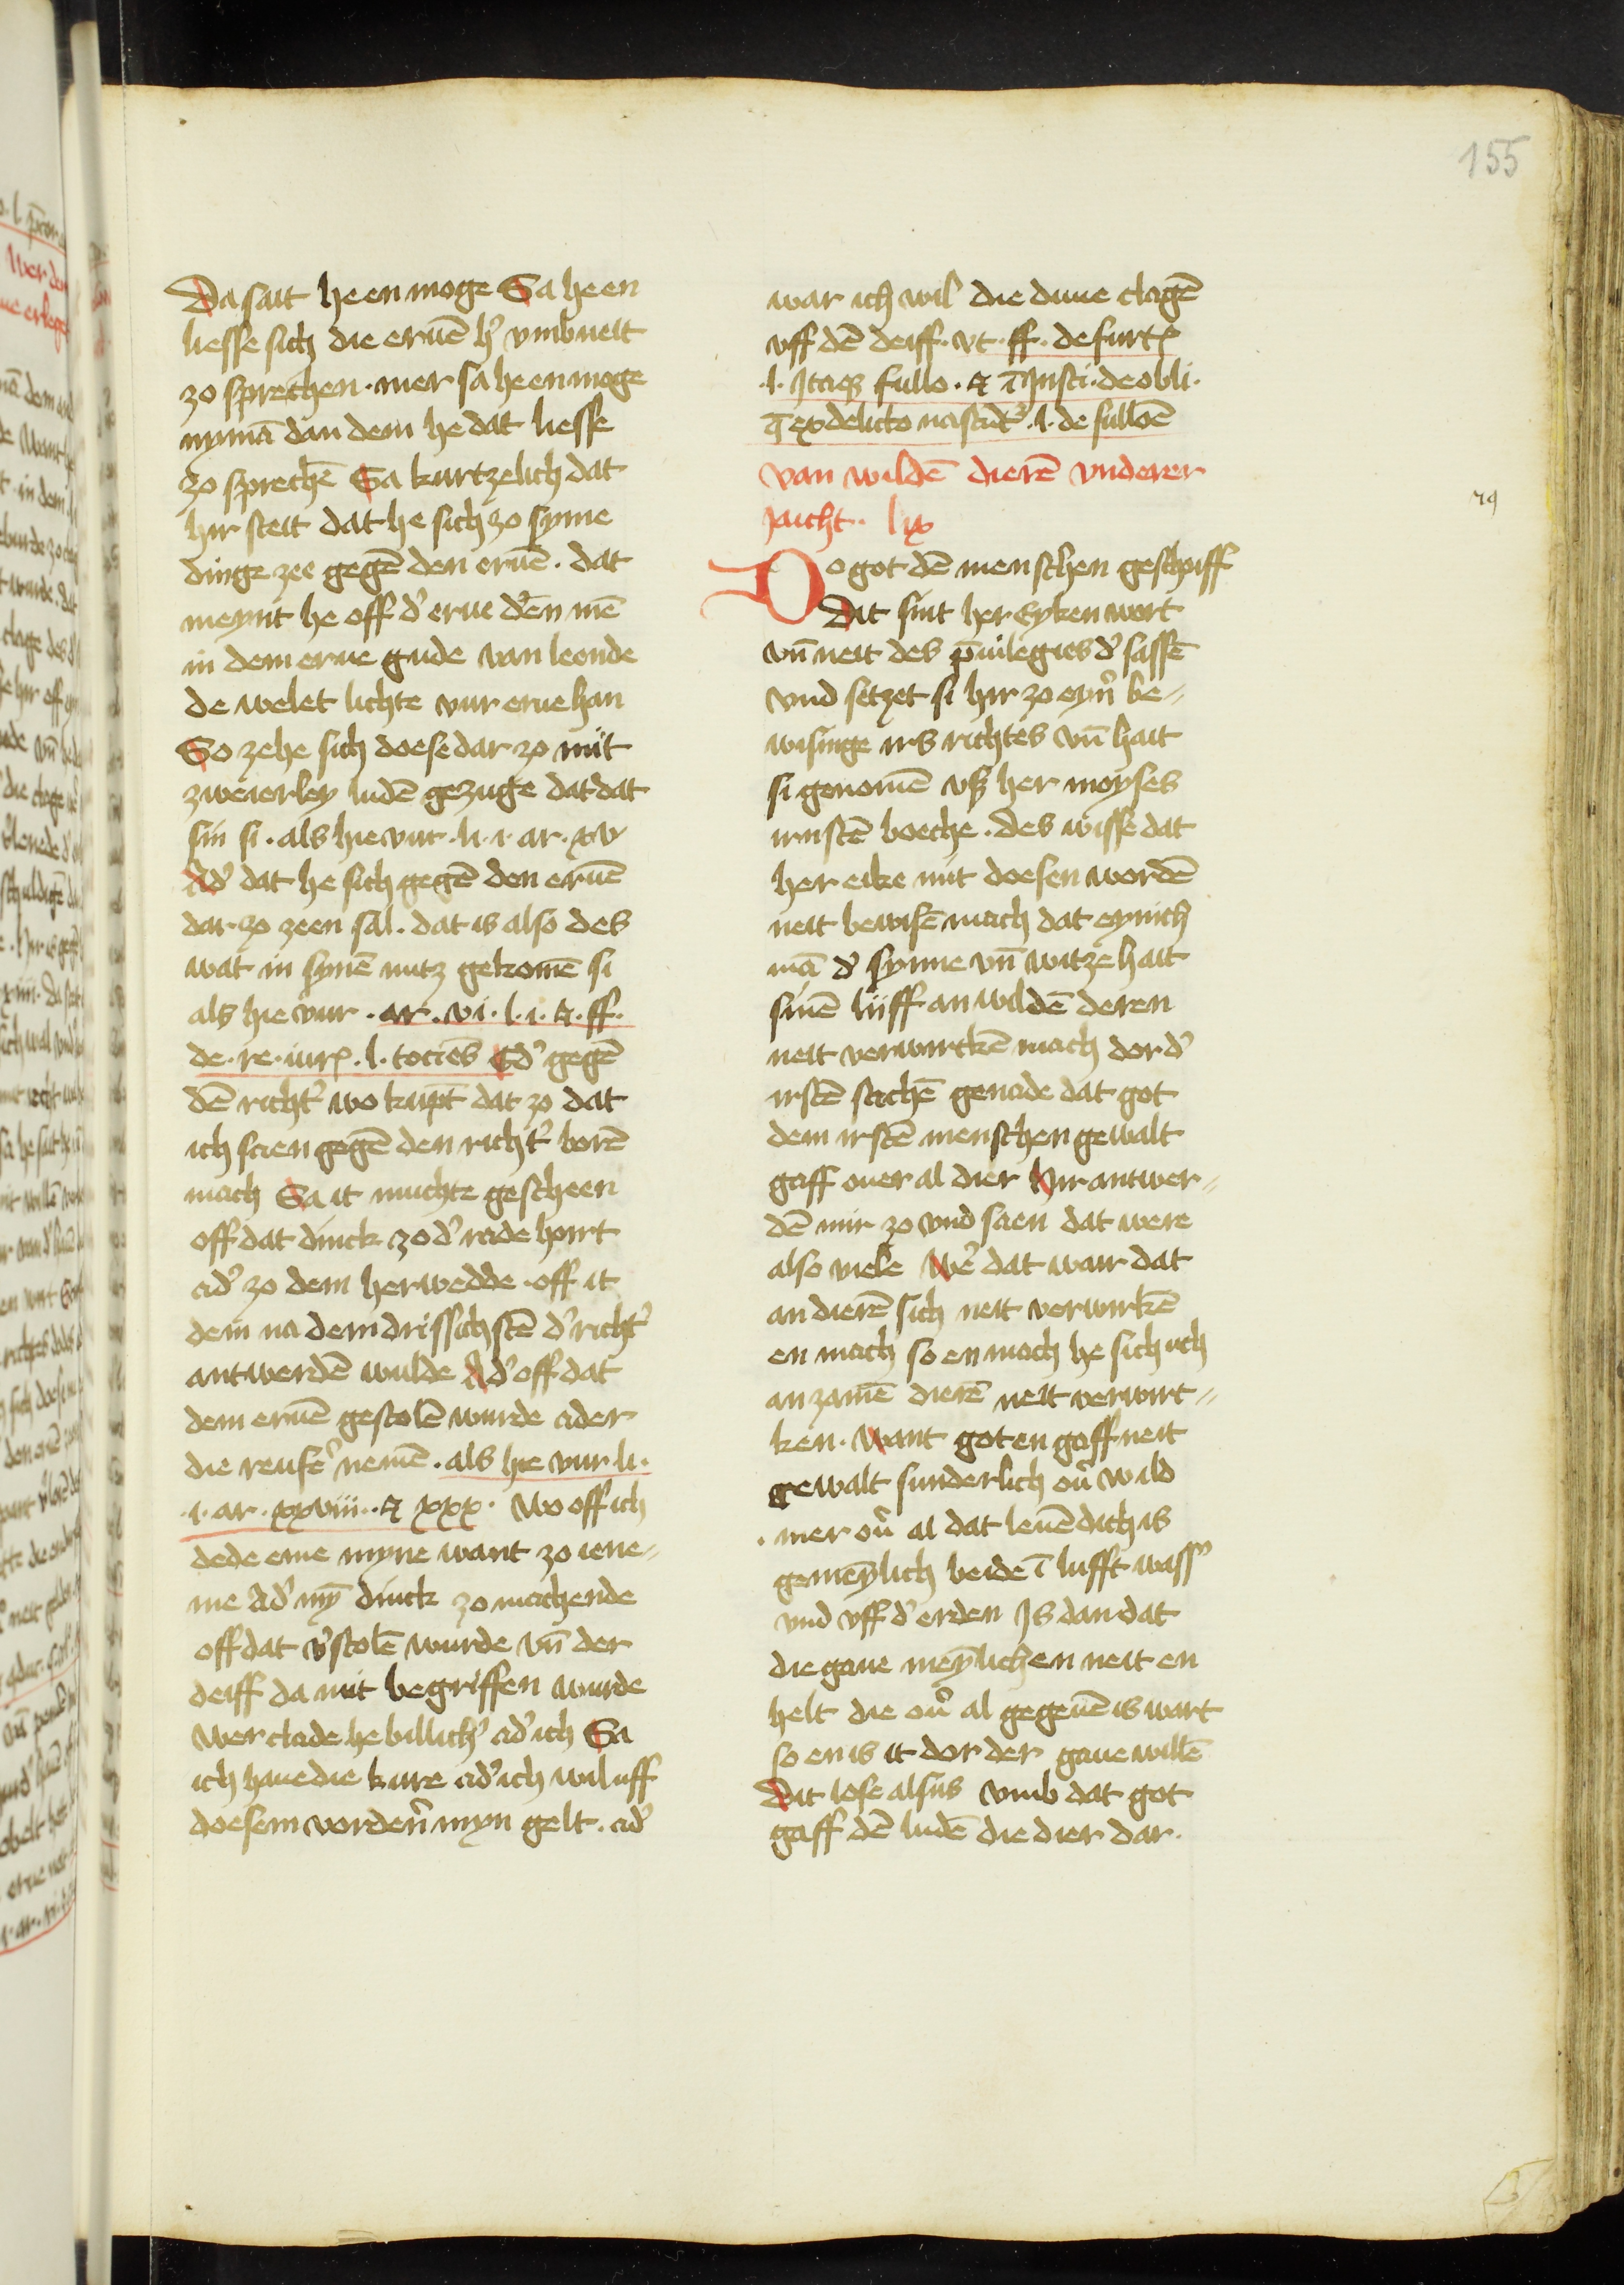 155
Da sait he en moge Sa he en
liesse sich die eruē h' vmb neit
zo sprechen · mer sa he en moge
nymā dan dem he dat liesse
zo sprechē Sa kurtzelich dat
hir steit dat he sich zo syme
dinge zee gegē den eruē · dat
meynt he off d' erue dēn mē
in dem erue gude van leonde
de welet lichte vur erue han
So zehe sich doese dar zo mit
zweierley ludē gezuge dat dat
sin si · als hie vur · li · i · ar · xv
Ad' dat he sich gegē den eruē
dar zo zeen sal · dat is also des
wat in synē nutz gekomē si
als hie vur · ar · vi · l · i · & · ff ·
de · re · iur · l · tociēs Ed' gegē
dē richt' wo kupt dat zo dat
ich scien gegē den richt' borē
mach Sa it muchte gescheen
off dat dinck zo d' rade hoirt
ad' zo dem herwedde · off it
dem na dem drissichstē d' richt'
antwerdē wulde Ad' off dat
dem eruē gestolē wurde ader
die reuse' nemē · als hie vur · li ·
· i · ar · xxviii · & xxx · Wo off ich
dede eme myne want zo iene-
me Ad' my dinck zo machende
off dat v'stolē wurde vn der
deiff da mit begriffen wurde
wer clade he billich' ad' ich Sa
ich haue die kure ad' ich wil uff
doesem vorder' myn gelt · ad'
war ich wil die duue clagē
vff dē deiff · vt · ff · de furt
· l · Itaq fullo · & ī Insti · de obli ·
q ex delicto nascūt' · l · de fulloē
van wildē dierē vnderer
Jaicht · lix
Do got dē menschen geschaiff
Dit sint her Eyken wort
vn neit des p'uilegies d' sassē
vnd setzet si hir zo eyn' be-
wisinge irs richtes vn hait
si genomē vß her moyses
irrstē boeche · des wisse dat
her eike mit doesen wordē
neit bewisē mach dat eynich
mā d' synne vn witze hait
sinē lijff an wildē deren
neit verwurkē mach dor d'
irstē sachē genade dat got
dem irstē menschen gewalt
gaff ouer al dier Hir antwer-
dē mir zo vnd saen dat were
also viele We' dat wair dat
an dierē sich neit verwirkē
en mach so en mach he sich uch
an zamē dierē neit verwirt-
ken · Want got en gaff neit
gewalt sunderlich ou' wild
· mer ou' al dat leuēdich is
gemēylich beide ī lufft wass'
vnd vff d' erden Is dan dat
die gaue mēylichen neit en
helt die ou' al gegeuē is wart
so en is it dor der gaue willē
Dit lose alsus vmb dat got
gaff dē ludē die dier dar ·